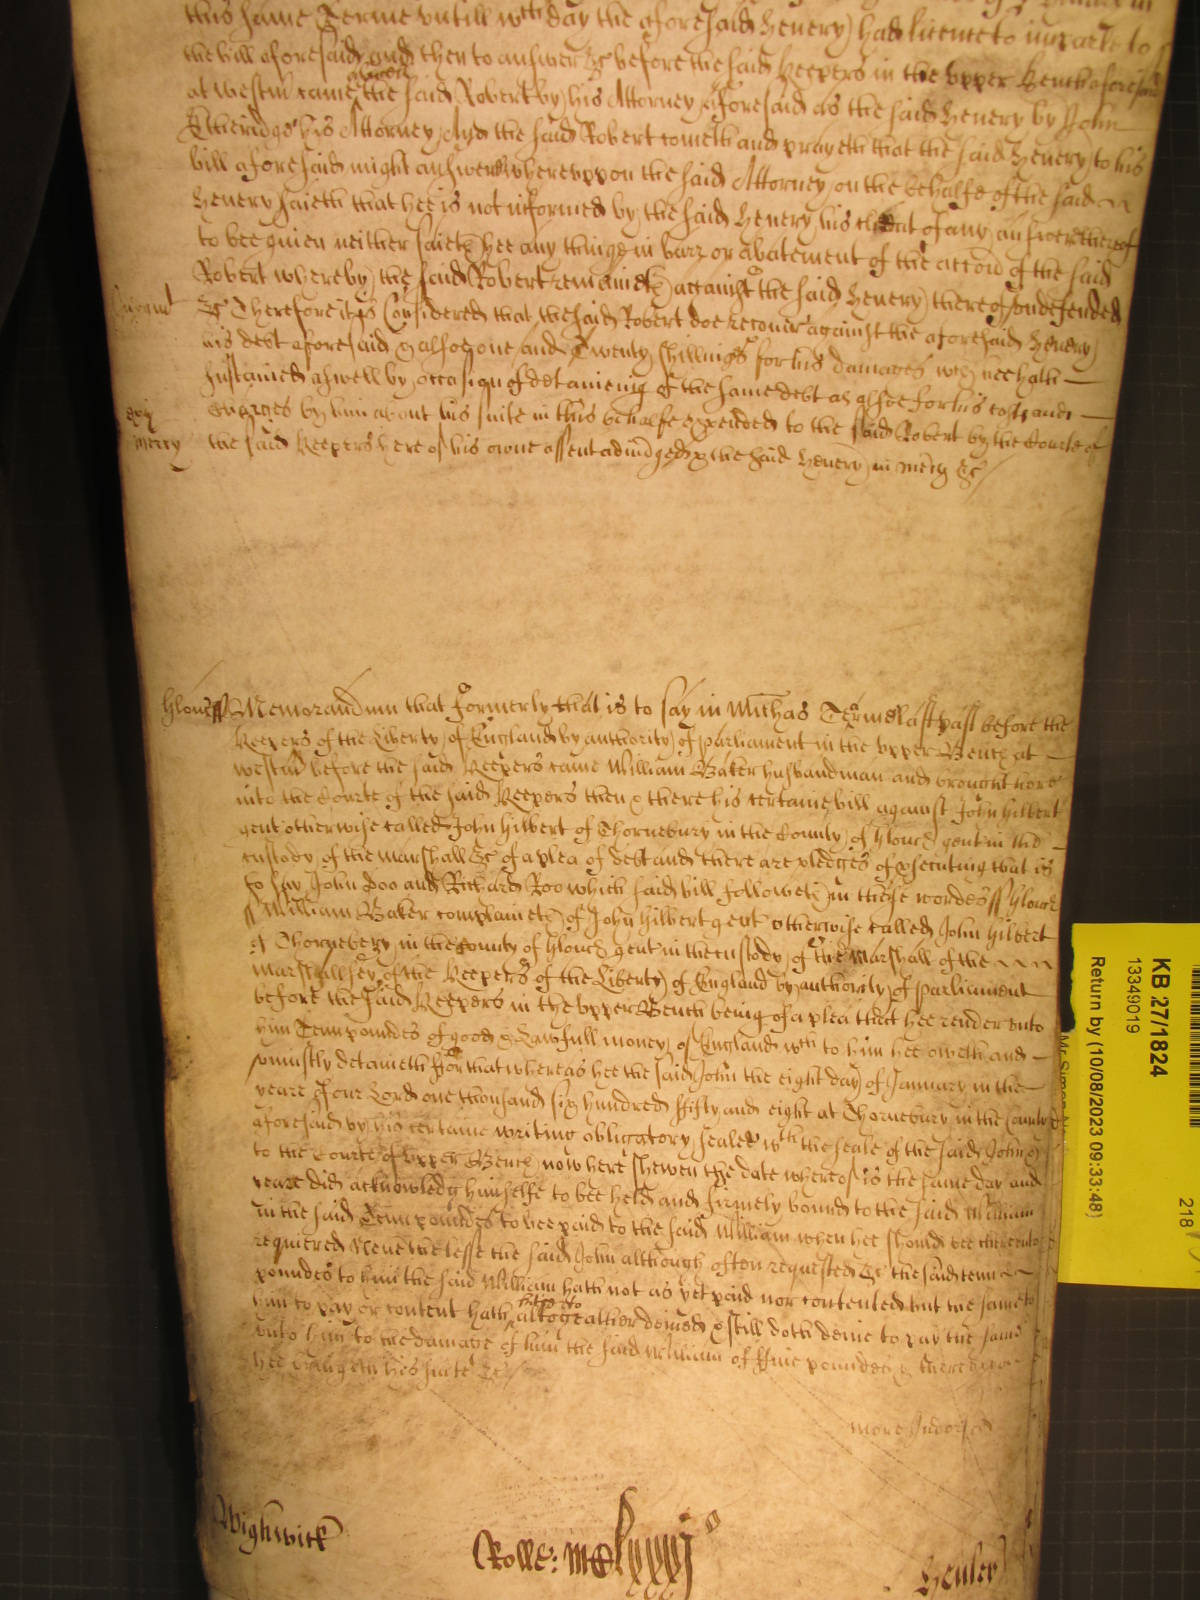 this same Terme untill wch day the aforesaid Henery had licence to imparle to
the bill aforesaid and then to answer &c before the said Keepers in the upper Bench aforesaid
at Westm came aswell the said Robert by his Attorney aforesaid as the said Henery by John
Etheridge his Attorney And the said Robert cometh and prayeth that the said Henery to his
bill aforesaid might answer whereupon the said Attorney on the behalfe of the said
Henery saieth that hee is not informed by the said Henery his client of any answere thereof
to bee given neither saieth hee any thinge in barr or abatement of the accon of the said
Robert whereby the said Robert remaineth against the said Henery thereof undefended
&c Therefore it is Considered that the said Robert doe recover against the aforesaid Henery
his debt aforesaid & alsoe one and Twenty shillings for his damages wch hee hath
sustained aswell by occasion of detaineing of the same debt as alsoe for his costs and
charges by him about his suite in this behalfe expended to the said Robert by the Courte of
mercy the said Keepers here of his owne assent adiudged & the said Henery in mercy &c
Glouc ss Memorandum that formerly that is to say in Michas Terme last past before the
Keepers of the Liberty of England by authority of parliament in the upper Bench at
Westm before the said Keepers came William Baker husbandman and brought here
into the Courte of the said Keepers then & there his certaine bill against John Hilbert
gent otherwise called John Hilbert of Thornebury in the County of Glouc gent in the
custody of the Marshall &c of a plea of debt and there are pledges of psecuting that is
to say John Doo and Richard Roo which said bill followeth in these wordes ss Glouc
ss William Baker complaineth of John Hilbert gent otherwise called John Hilbert
of Thornebery in the County of Glouc gent in the custody of the Marshall of the
Marshallsey of the Keepers of the Liberty of England by authority of parliament
before the said Keepers in the upper Bench being of a plea that hee render unto
him Tenn poundes of good & lawfull money of England wch to him hee oweth and
uniustly detaineth For that whereas hee the said John the eight day of January in the
yeare of our Lord one thousand six hundred fifty and eight at Thornebury in the County
aforesaid by his certaine writing obligatory sealed wth the seale of the said John &
to the Courte of upper Bench now here shewen the date whereof is the same day and
yeare did acknowledg himselfe to bee held and firmely bound to the said William
in the said Tenn poundes to bee paid to the said William when hee should bee thereunto
requiered Neverthelesse the said John although often requested &c the said tenn
poundes to him the said William hath not as yet paid nor contented but the same to
him to pay or content hath hitherto altogeather denied & still doth denie to pay the same
unto him to the damage of him the said William of Five poundes & thereupon
hee bringeth his suite &c
more Indorsed
Wightwick
Rolle:
Henley
KB 27/1824
13349019
Return by (10/08/2023 09:33:48)
218